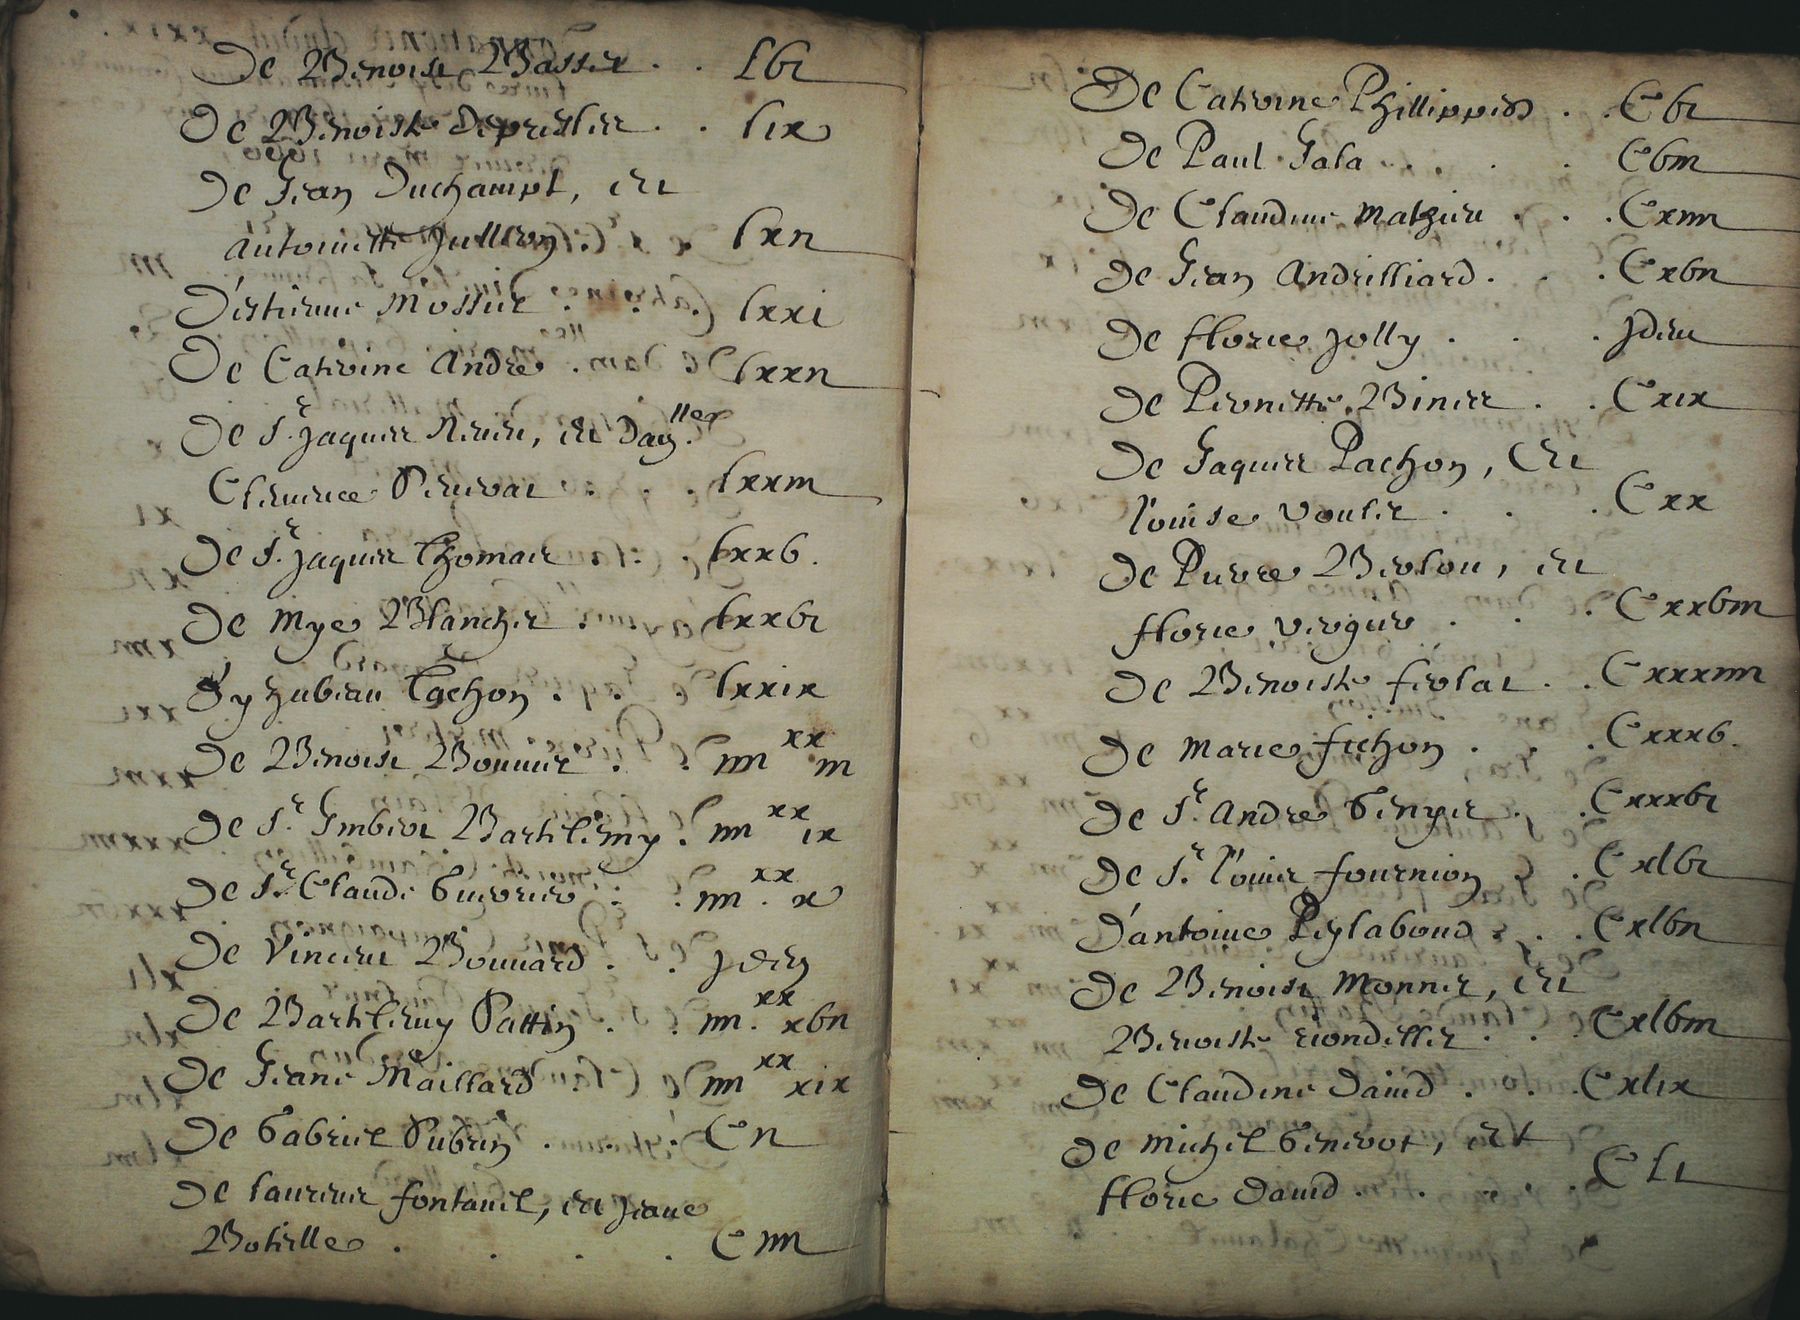 De Benoist Basset . . lbi
De Benoiste Depreslier . . lix
De Jean Duchampt, et
Antoinette Jullien . . . lxii
D'estienne Mossier . . . lxxi
De Caterine André . lxxii
De Sr. Jaques et Dam.lle
Clemence . . . lxxiii
De Sr. Jaques Thomas . . . lxxb.
De Mye Blanchet . . . lxxbi
D'yzabeau Tachon . . . lxxix
De Benoist Bonnier . . iiii xx iii
De Sr. Imbert Bartelemy . iiii xx ix
De Sr. Claude Guerrier . . iiii xx . x
De Vincent Bonnard . . jdem
De Bartelemy Pattin . . iiii xx . xbii
De Jeane Maillard . . iiii xx xix
De Gabriel Dubrin . . . Cii
De Laurent Fontanel, et Jeane
Botielle . . . . Ciiii
De Caterine Phillippes . . Cbi
De Paul Gala . . . Cbiii
De Claudine Mathieu . . . Cxiiii
De Jean Andrilliard . . . Cxbii
De Florie Jolly . . . jdem
De Pernette Binet . . Cxix
De Jaques Pachon, Et
Louise Voulet . . . Cxx
De Pierre Berlou, et
Florie Vergier . . . Cxxbiii
De Benoiste Ferlat . . Cxxxiiii
De Marie Fichon . . . Cxxxb.
De Sr. André Genyer . . Cxxxbi
De Sr. Louis Fournion . . Cxlbi
D'antoine Peylaboud . . . Cxlbii
De Benoist Monnet, et
Benoiste Riondellet . . . Cxlbiii
De Claudine David . . . Cxlix
De Michel Genevot, et
Florie David . . . . . Cli